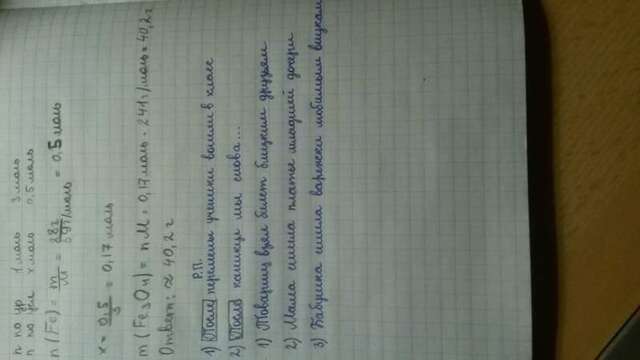 n по ур 1 моль 3 моль
n по усл x моль 0,5 моль
n (Fe) = m/M = 28г/59г/моль = 0,5 моль
x = 0,5/3 = 0,17 моль
m (Fe3O4) = n M = 0,17 моль · 241 г/моль = 40,2 г
Ответ: ≈ 40,2 г
Р.П.
1) После перемены ученики вошли в класс
2) После каникул мы снова...
1) Товарищ взял билет близким друзьям
2) Мама сшила платье младшей дочери
3) Бабушка сшила варежки любимым внукам